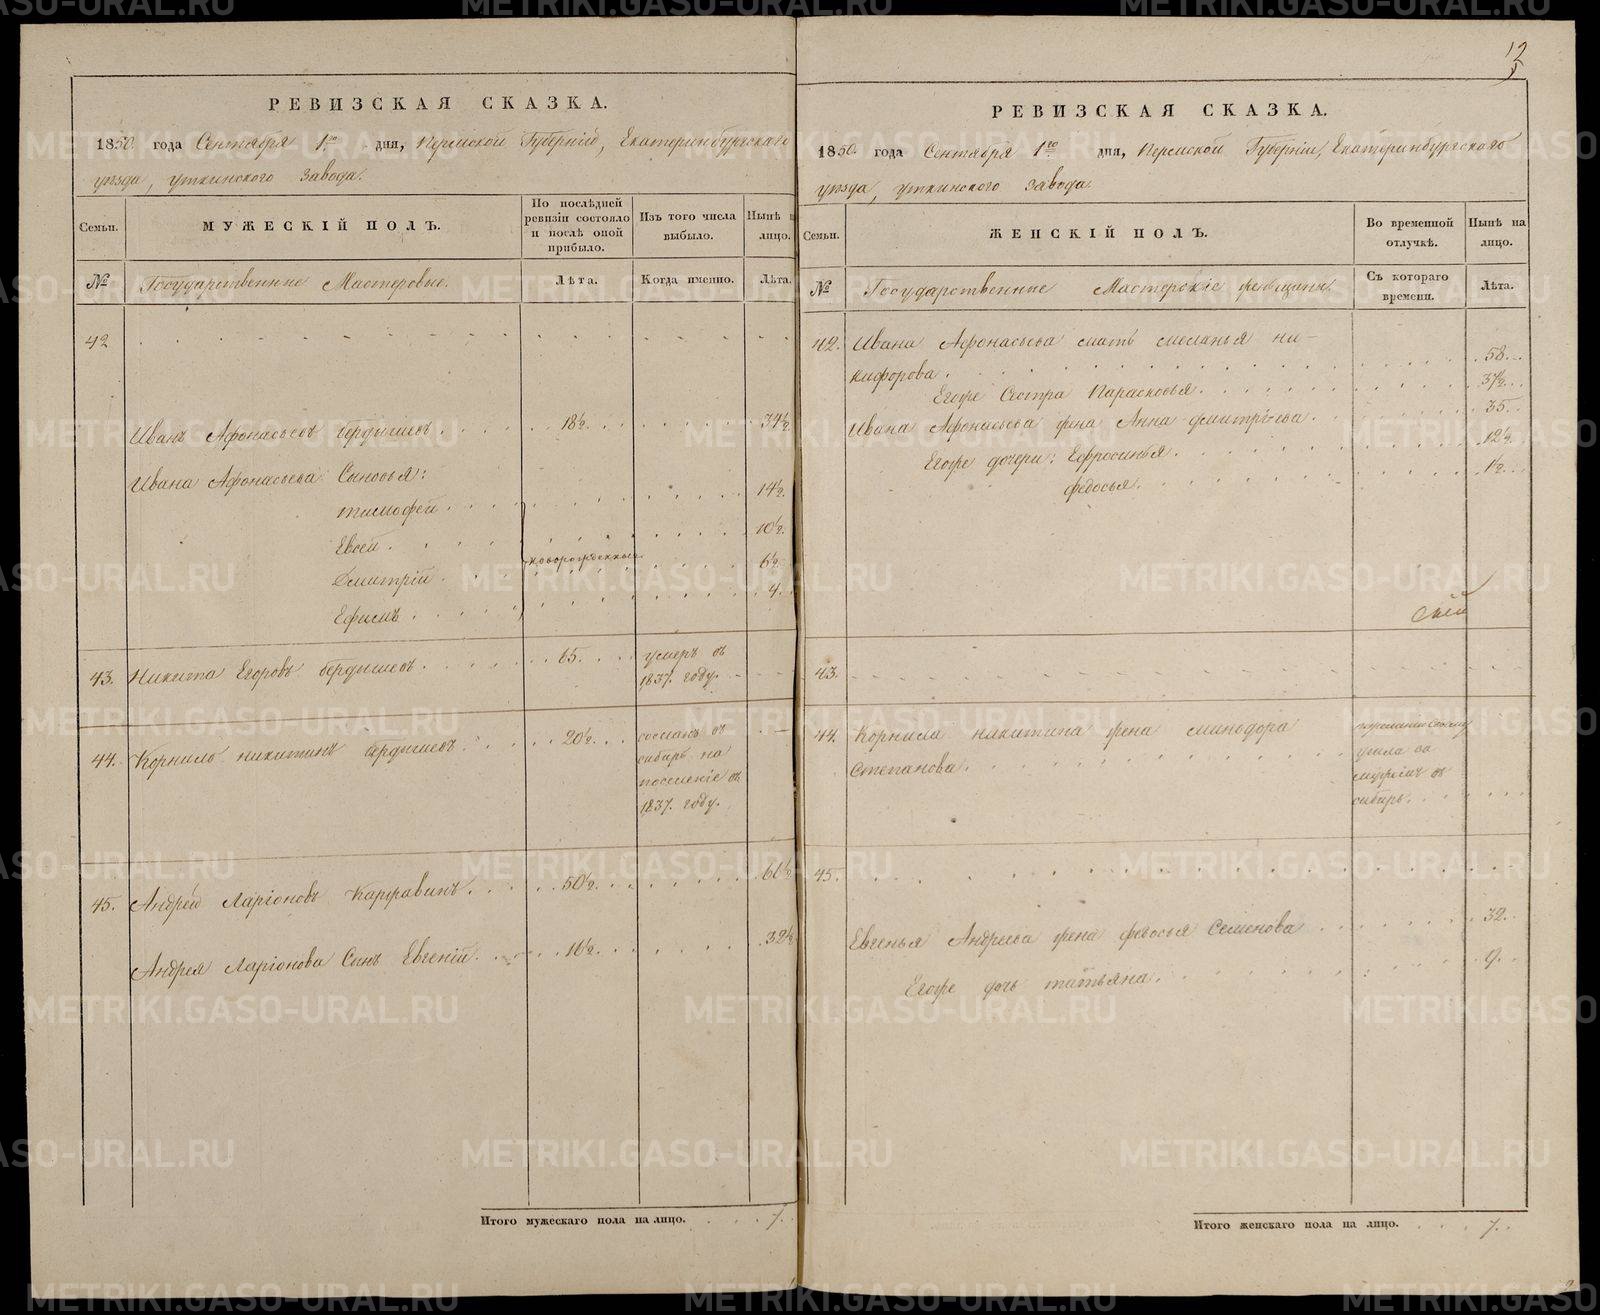 12
РЕВИЗСКАЯ СКАЗКА.
1850 года Сентября 1го дня, Пермской Губерніи, Екатеринбургскаго
уѣзда, уткинскаго завода.
Семьи.
МУЖЕСКІЙ ПОЛЪ.
По послѣдней
ревизіи состояло
и послѣ оной
прибыло.
Изъ того числа
выбыло.
Нынѣ н
лицо.
№
Государственные Мастеровые.
Лѣта.
Когда именно.
Лѣта.
42
Иванъ Афонасьевъ бердышевъ 18½. 34½.
Ивана Афонасьева Сыновья:
тимофей 14½.
Евсей 10½.
новорожденныя
Дмитрій 6½.
Ефимъ 4.
43. Никита Егоровъ бердышевъ 65. умеръ въ
1837. году.
44. Корнило никитинъ бердышевъ 20½. сосланъ въ
сибирь на
поселеніе въ
1837. году.
45. Андрей Ларіоновъ Каржавинъ 50½. 66½
Андрея Ларіонова Сынъ Евгеній 16½. 32½
Итого мужескаго пола на лицо. 7.
РЕВИЗСКАЯ СКАЗКА.
1850. года Сентября 1го дня, Пермской Губерніи, Екатеринбургскаго
уѣзда, уткинскаго завода.
Семьи.
ЖЕНСКІЙ ПОЛЪ.
Во временной
отлучкѣ.
Нынѣ на
лицо.
№
Государственные Мастерскіе женщины.
Съ котораго
времени.
Лѣта.
42. Ивана Афонасьева мать меланья ни-
кифорова. 58.
Егоже Сестра Парасковья 37½.
Ивана Афонасьева жена Анна дмитріева 35.
Егоже дочери: Ефросинья 12½.
федосья. 1½.
43.
44. Корнила никитина жена минодора
Степанова.
ушла за
мужемъ въ
сибирь.
45.
Евгенья Андреева жена федосья Семенова 32.
Егоже дочь татьяна. 9.
Итого женскаго пола на лицо. 7.
METRIKI.GASO-URAL.RU